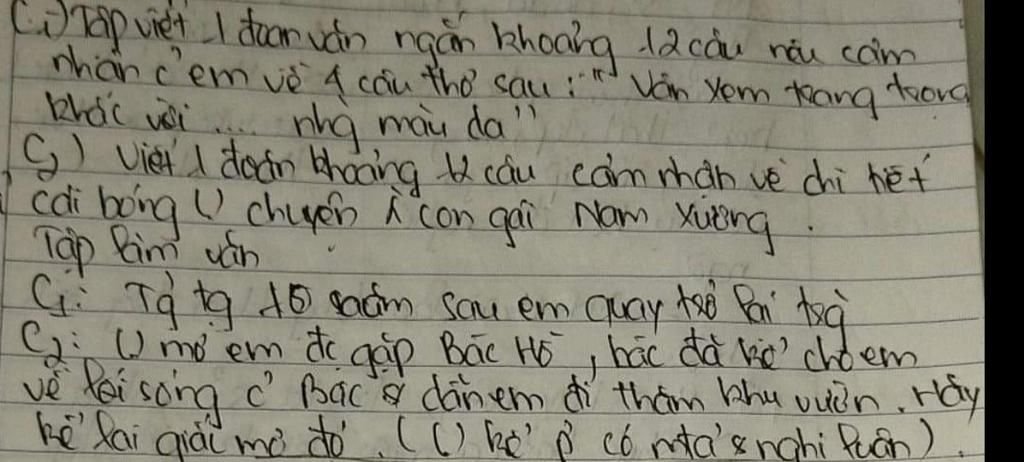 C1) Tập viết 1 đoạn văn ngắn khoảng 12 câu nêu cảm
nhận c' em về 4 câu thơ sau: "Vân xem trang trọng
khác vời .... nhg màu da"
C2) Viết 1 đoạn khoảng 12 câu cảm nhận về chi tiết
cái bóng () chuyện con gái Nam Xương.
Tập làm văn
C1: Tg tg 10 năm sau em quay trở lại trg
C2: () mơ em đc gặp Bác Hồ, bác đã kể cho em
về lối sống c' Bác & dẫn em đi thăm khu vườn. Hãy
kể lại giấc mơ đó. (() kể p' có mtả & nghị luận).